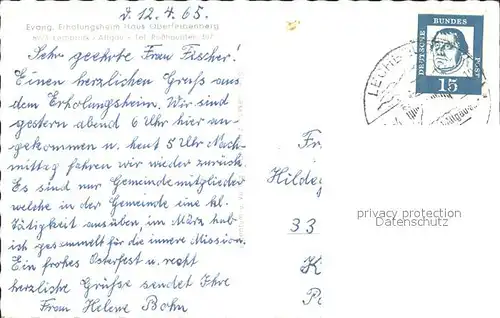 d. 12.4.65.
Evang. Erholungsheim Haus Oberferbenberg
Allgäu
Sehr geehrte Frau Fischer!
Einen herzlichen Gruß aus
dem Erholungsheim. Wir sind
gestern abend 6 Uhr hier an-
gekommen u. heut 5 Uhr Nach-
mittag fahren wir wieder zurück.
Es sind nur Gemeindemitglieder
welche in der Gemeinde eine kl.
Tätigkeit ausüben, im März hab
ich gesammelt für die innere Mission.
Ein frohes Osterfest u. recht
herzliche Grüße sendet Ihre
Frau Helene Bohn
DEUTSCHE BUNDES POST
15
Fr
Hildeg
33
K
privacy protection
Datenschutz